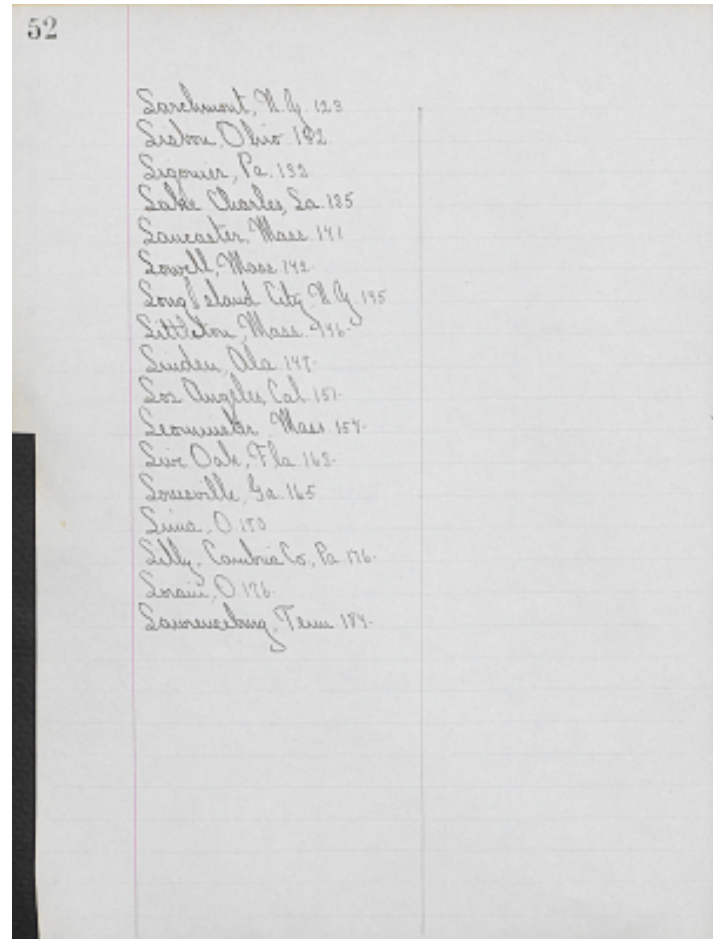 52
Larchmont, N.Y. 123
Lisbon, Ohio. 132
Ligonier, Pa. 132
Lake Charles, La. 135
Lancaster, Mass. 141
Lowell, Mass. 142.
Long Island City, N.Y. 145
Littleton, Mass. 146.
Linden, Ala. 147.
Los Angeles, Cal. 151.
Leominster, Mass. 154.
Live Oak, Fla. 163.
Louisville, Ga. 165
Lima, O.
Lilly, Cambria Co., Pa. 176.
Lorain, O. 176.
Lawrenceburg, Tenn. 184.